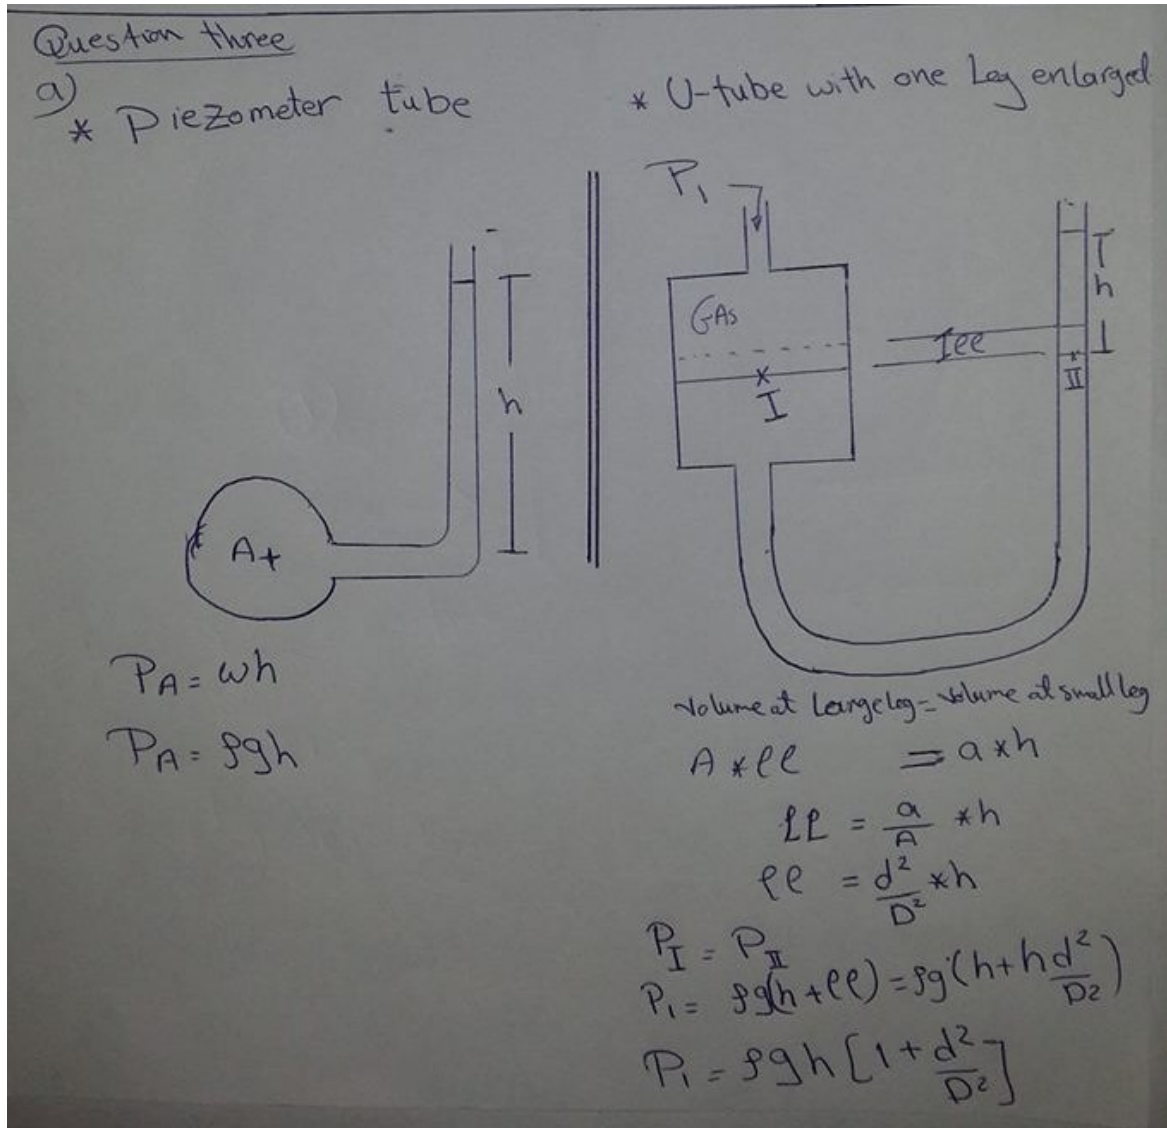 Question three
a)
* Piezometer tube
h
A+
P_A = ωh
P_A = ρgh
* U-tube with one Leg enlarged
P₁
GAs
I
Iℓℓ
h
II
Volume at Large leg = Volume at small leg
A * ℓℓ = a * h
ℓℓ = a/A * h
ℓℓ = d²/D² * h
P_I = P_II
P₁ = ρg(h + ℓℓ) = ρg(h + h d²/D²)
P₁ = ρgh [1 + d²/D²]